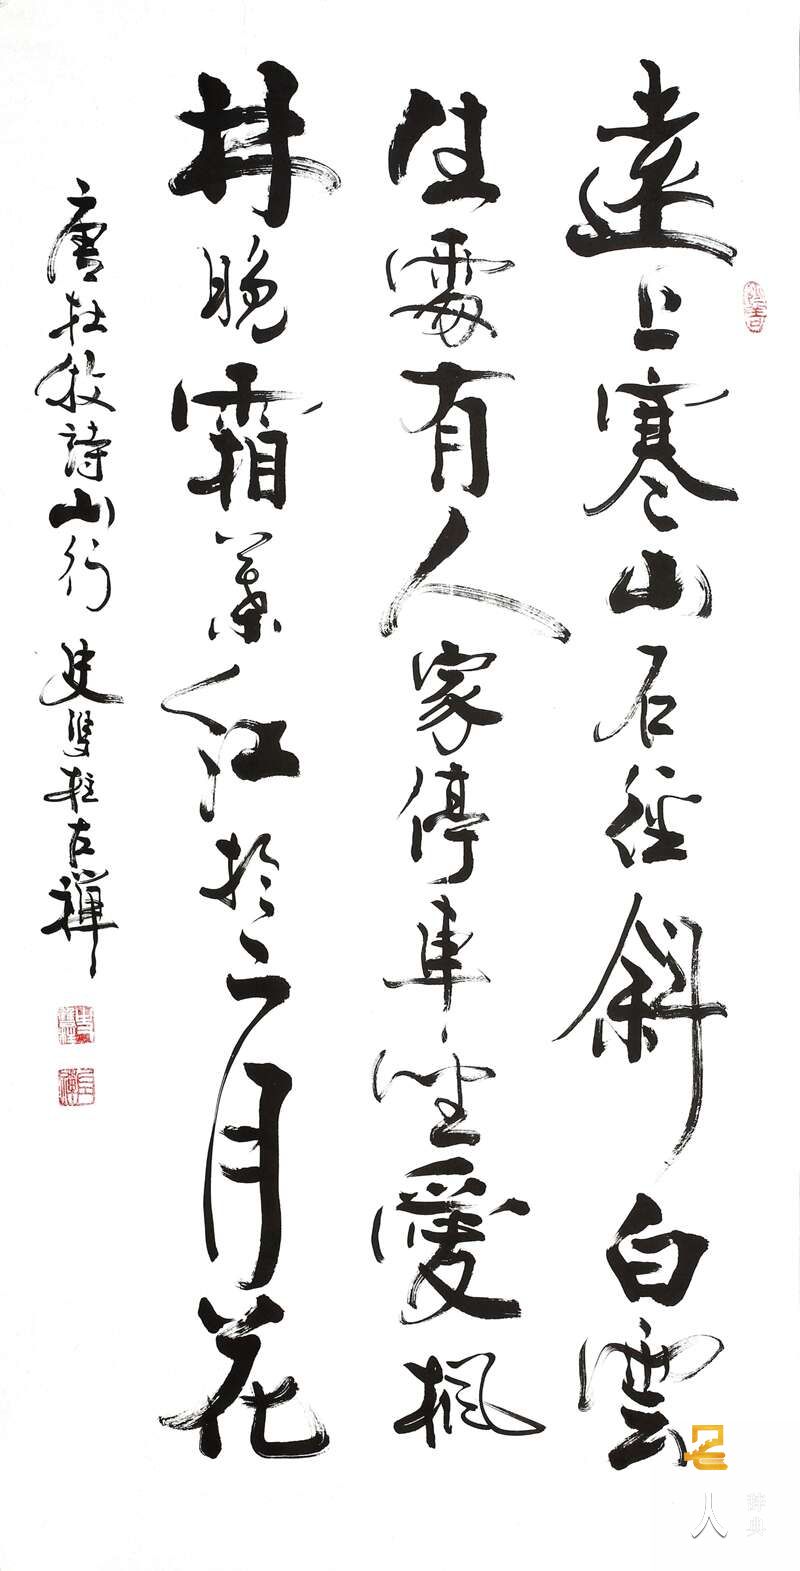 遠上寒山石徑斜白雲
生處有人家停車坐愛楓
林晚霜葉紅於二月花
唐杜牧詩山行 史雙柱
名人
辞典